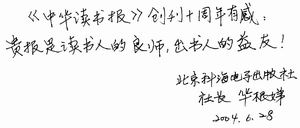 《中华读书报》创刊十周年有感：
贵报是读书人的良师，出书人的益友！
北京科海电子出版社
社长 华根娣
2004.6.28